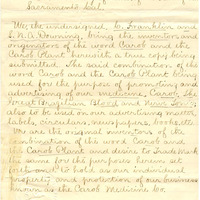 Sacramento Cal.
We, the undersigned C. Franklin and
S. N. D. Downing, being the inventors and
originators of the word Carob and the
Carob Plant herewith a true copy being
submitted. The said combination of
the word Carob and the Carob Plant being
used for the purpose of promoting and
advertising of our medicines, Carob, The
Great Brazilian Blood and Nerve Tonic,
also to be used on our advertising matter
labels, circulars, newspapers, books, etc.
We are the original inventors of the
combination of the word Carob and
the Carob Plant and desire to trademark
the same for the purposes herein set
forth and to hold as our individual
property and protection of our business
known as the Carob Medicine Co.